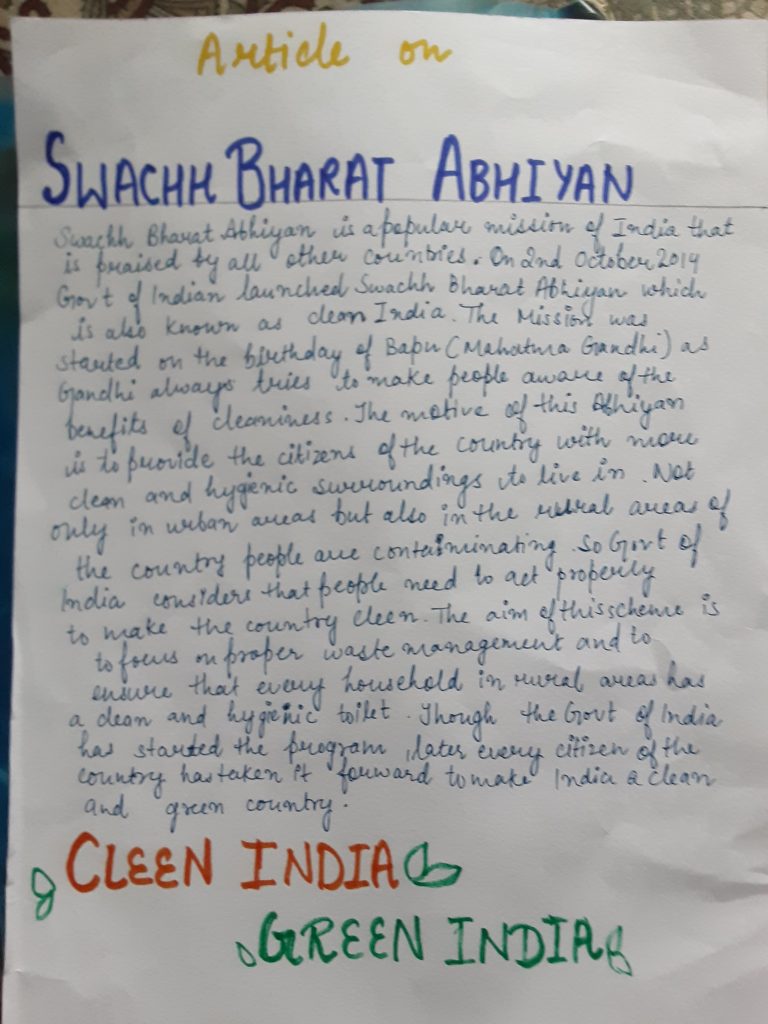 Article on
SWACHH BHARAT ABHIYAN
Swachh Bharat Abhiyan is a popular mission of India that
is praised by all other countries. On 2nd October 2019
Govt of Indian launched Swachh Bharat Abhiyan which
is also known as clean India. The Mission was
started on the birthday of Bapu (Mahatma Gandhi) as
Gandhi always tries to make people aware of the
benefits of cleaniness. The motive of this Abhiyan
is to provide the citizens of the country with more
clean and hygienic surroundings to live in. Not
only in urban areas but also in the rural areas of
the country people are contaminating. So Govt of
India considers that people need to act properly
to make the country cleen. The aim of this scheme is
to focus on proper waste management and to
ensure that every household in rural areas has
a clean and hygienic toilet. Though the Govt of India
has started the program, later every citizen of the
country has taken it forward to make India a clean
and green country.
CLEEN INDIA
GREEN INDIA